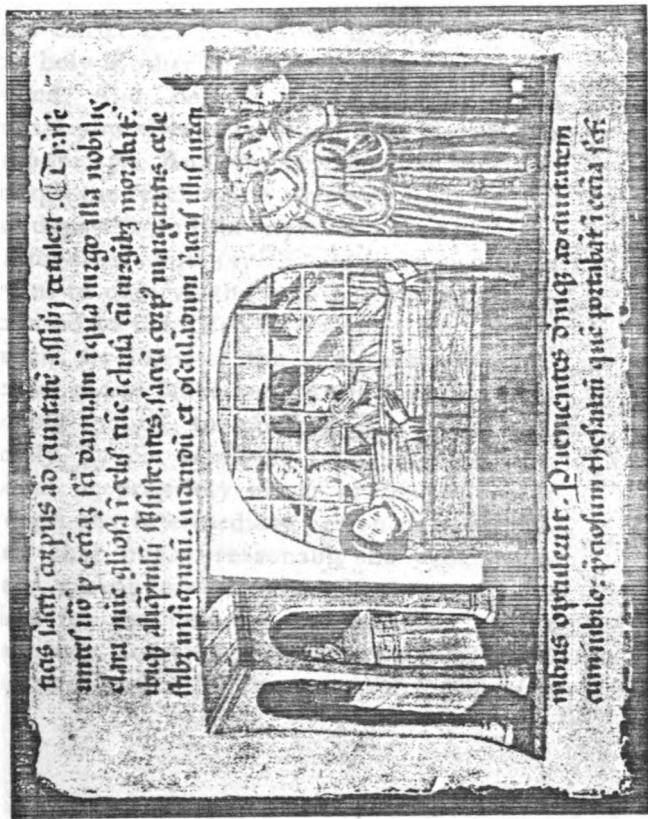 ticis sacri corpus ad ciuitatē assisiј detulert. ¶ Trāse
untes uō p ecciaʒ sci damiani ī qua uirgo illa nobilis
clara nūc gliosa ī celis tūc īclusa cū uirgībʒ morabat̄.
ibiqʒ aliqͣntulū subsistentes, sacrū corpꝰ margaritis cele
stibʒ insignitū uidendū et osculādum sacris illis uirgi
nibus optulerūt. Puenientes deniqʒ ad ciuitatem
cum iubilo: p̄ciosum thesaurū quē portabāt ī eccīa scī